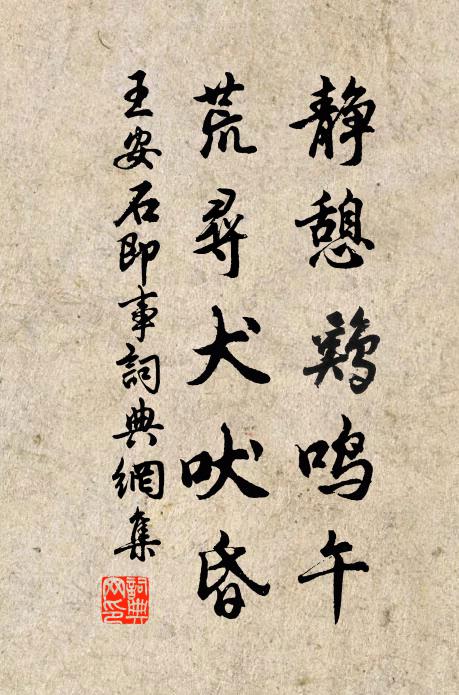 静憩鷄鸣午
荒尋犬吠昏
王安石即事詞典網集
詞典網印